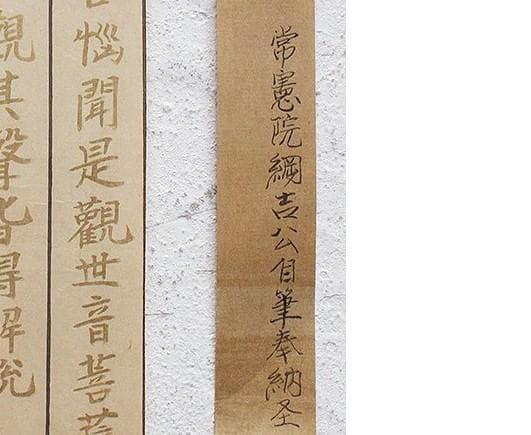 常憲院綱吉公自筆奉納圣
惱聞是觀世音菩
觀其聲皆得解脫